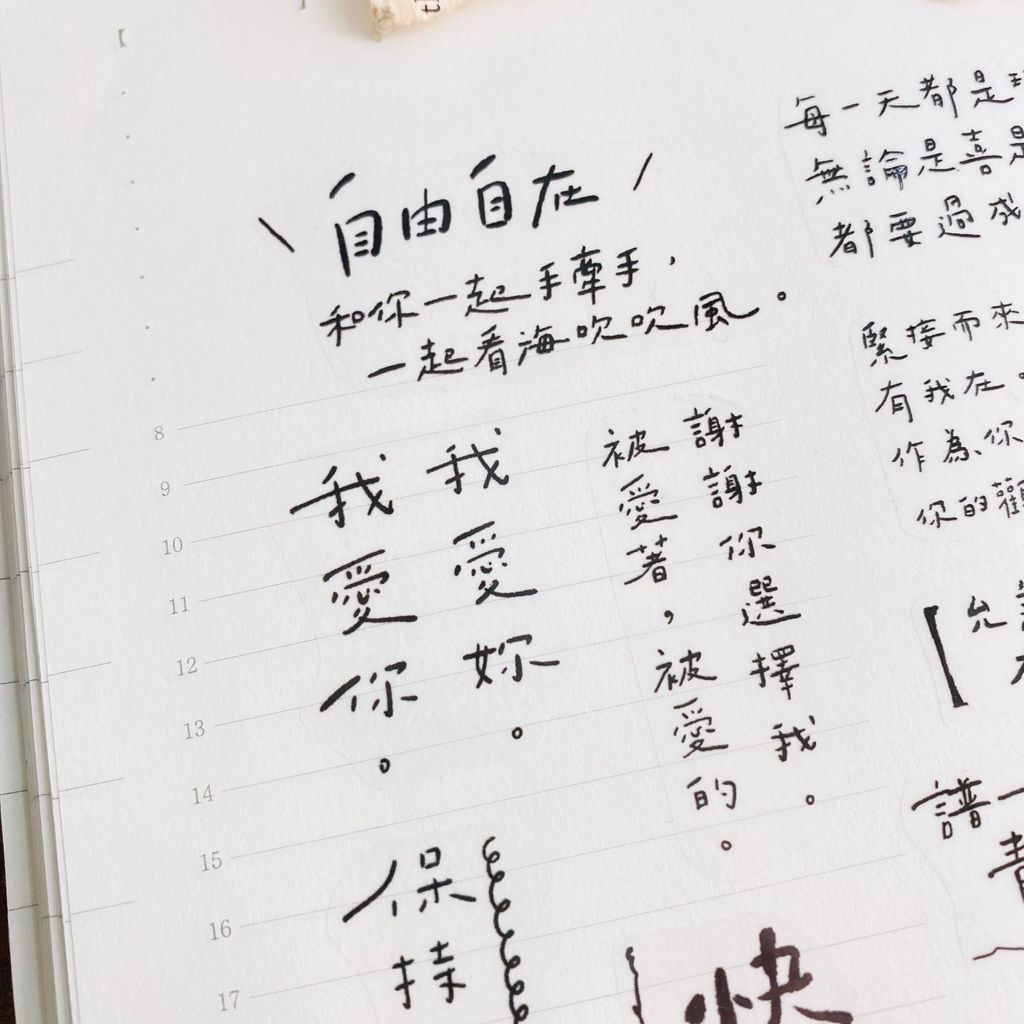 \ 自由自在 /
和你一起手牽手，
一起看海吹吹風。
我愛妳。
我愛你。
謝謝你選擇我。
被愛著，被愛的。
保持
快
每一天都是
無論是喜是
都要過成
緊接而來
有我在。
作為你
你的觀
允
譜一
青
8
9
10
11
12
13
14
15
16
17